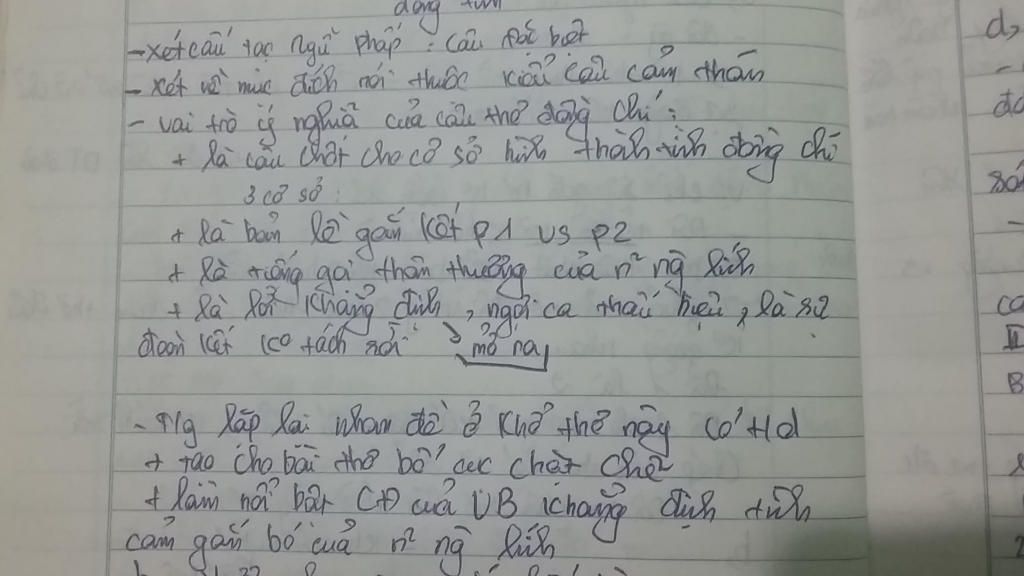 động tình
- xét cấu tạo ngữ pháp : câu đặc biệt
- xét về mục đích nói thuộc kiểu câu cảm thán
- vai trò ý nghĩa của câu thơ đồng chí :
+ là câu chốt cho cơ sở hình thành tình đồng chí
3 cơ sở :
+ là bản lề gắn kết p1 vs p2
+ là tiếng gọi thân thương của n² ng lính
+ là lời khẳng định, ngợi ca thấu hiểu, là sự
đoàn kết ko tách rời mở ra
- T/g lặp lại nhan đề ở khổ thơ này có t/d
+ tạo cho bài thơ bố cục chặt chẽ
+ làm nổi bật CĐ của VB khẳng định tình
cảm gắn bó của n² ng lính
d,
-
II
B